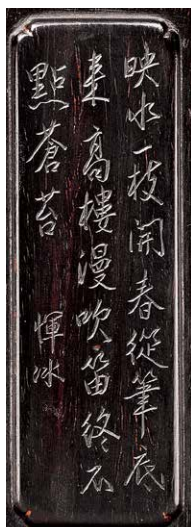 映水一枝開春從筆底
来高樓漫吹笛終不
點蒼苔 惲冰